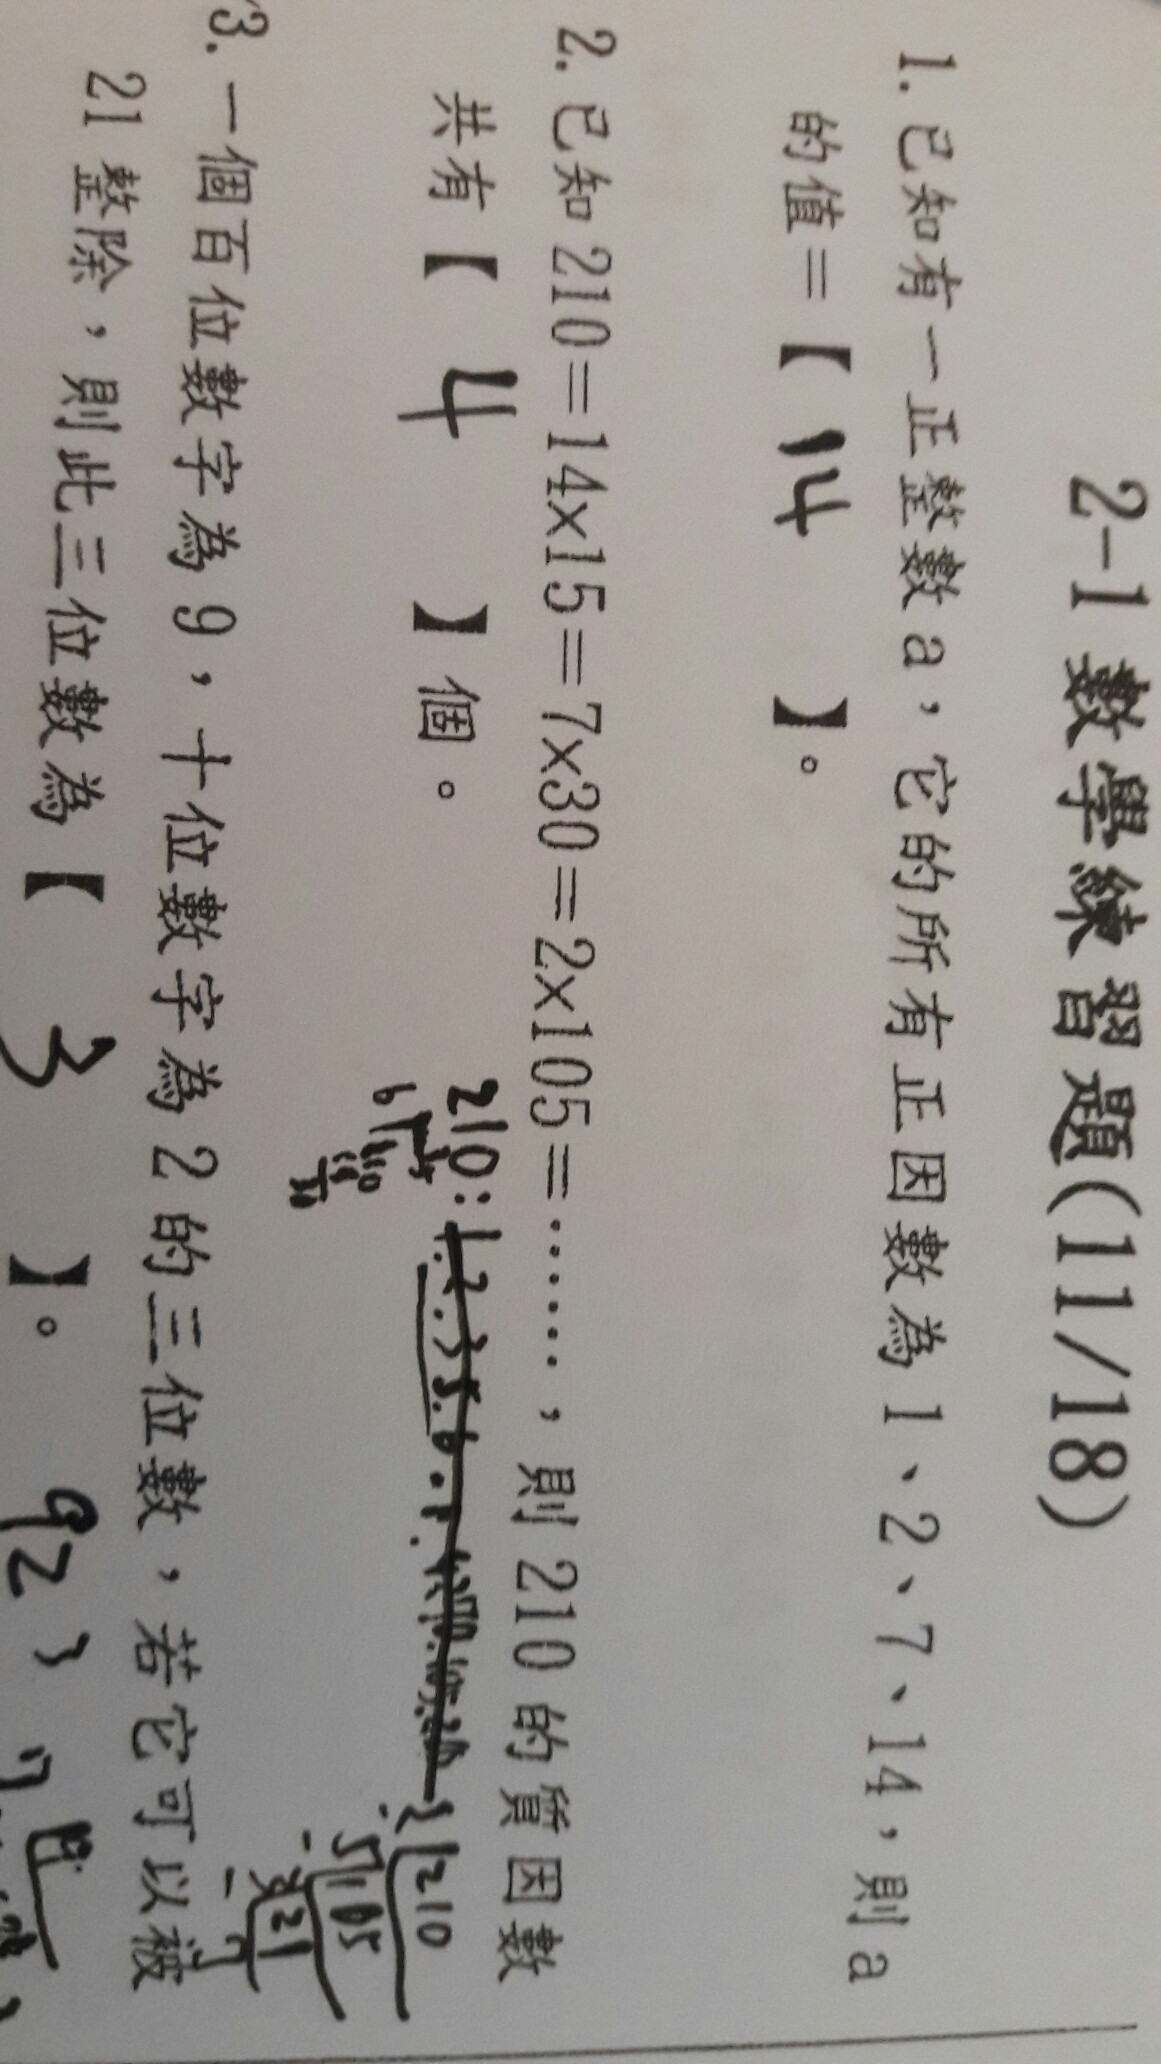 2-1 數學練習題(11/18)
1. 已知有一正整數a，它的所有正因數為 1、2、7、14，則 a
的值=【 14 】。
2. 已知 210=14×15=7×30=2×105=……，則 210 的質因數
共有【 4 】個。
210:1.2.3.5.6.7.
2 210
5 105
3 21
7
3. 一個百位數字為 9，十位數字為 2 的三位數，若它可以被
21 整除，則此三位數為【 3 】。
92 3